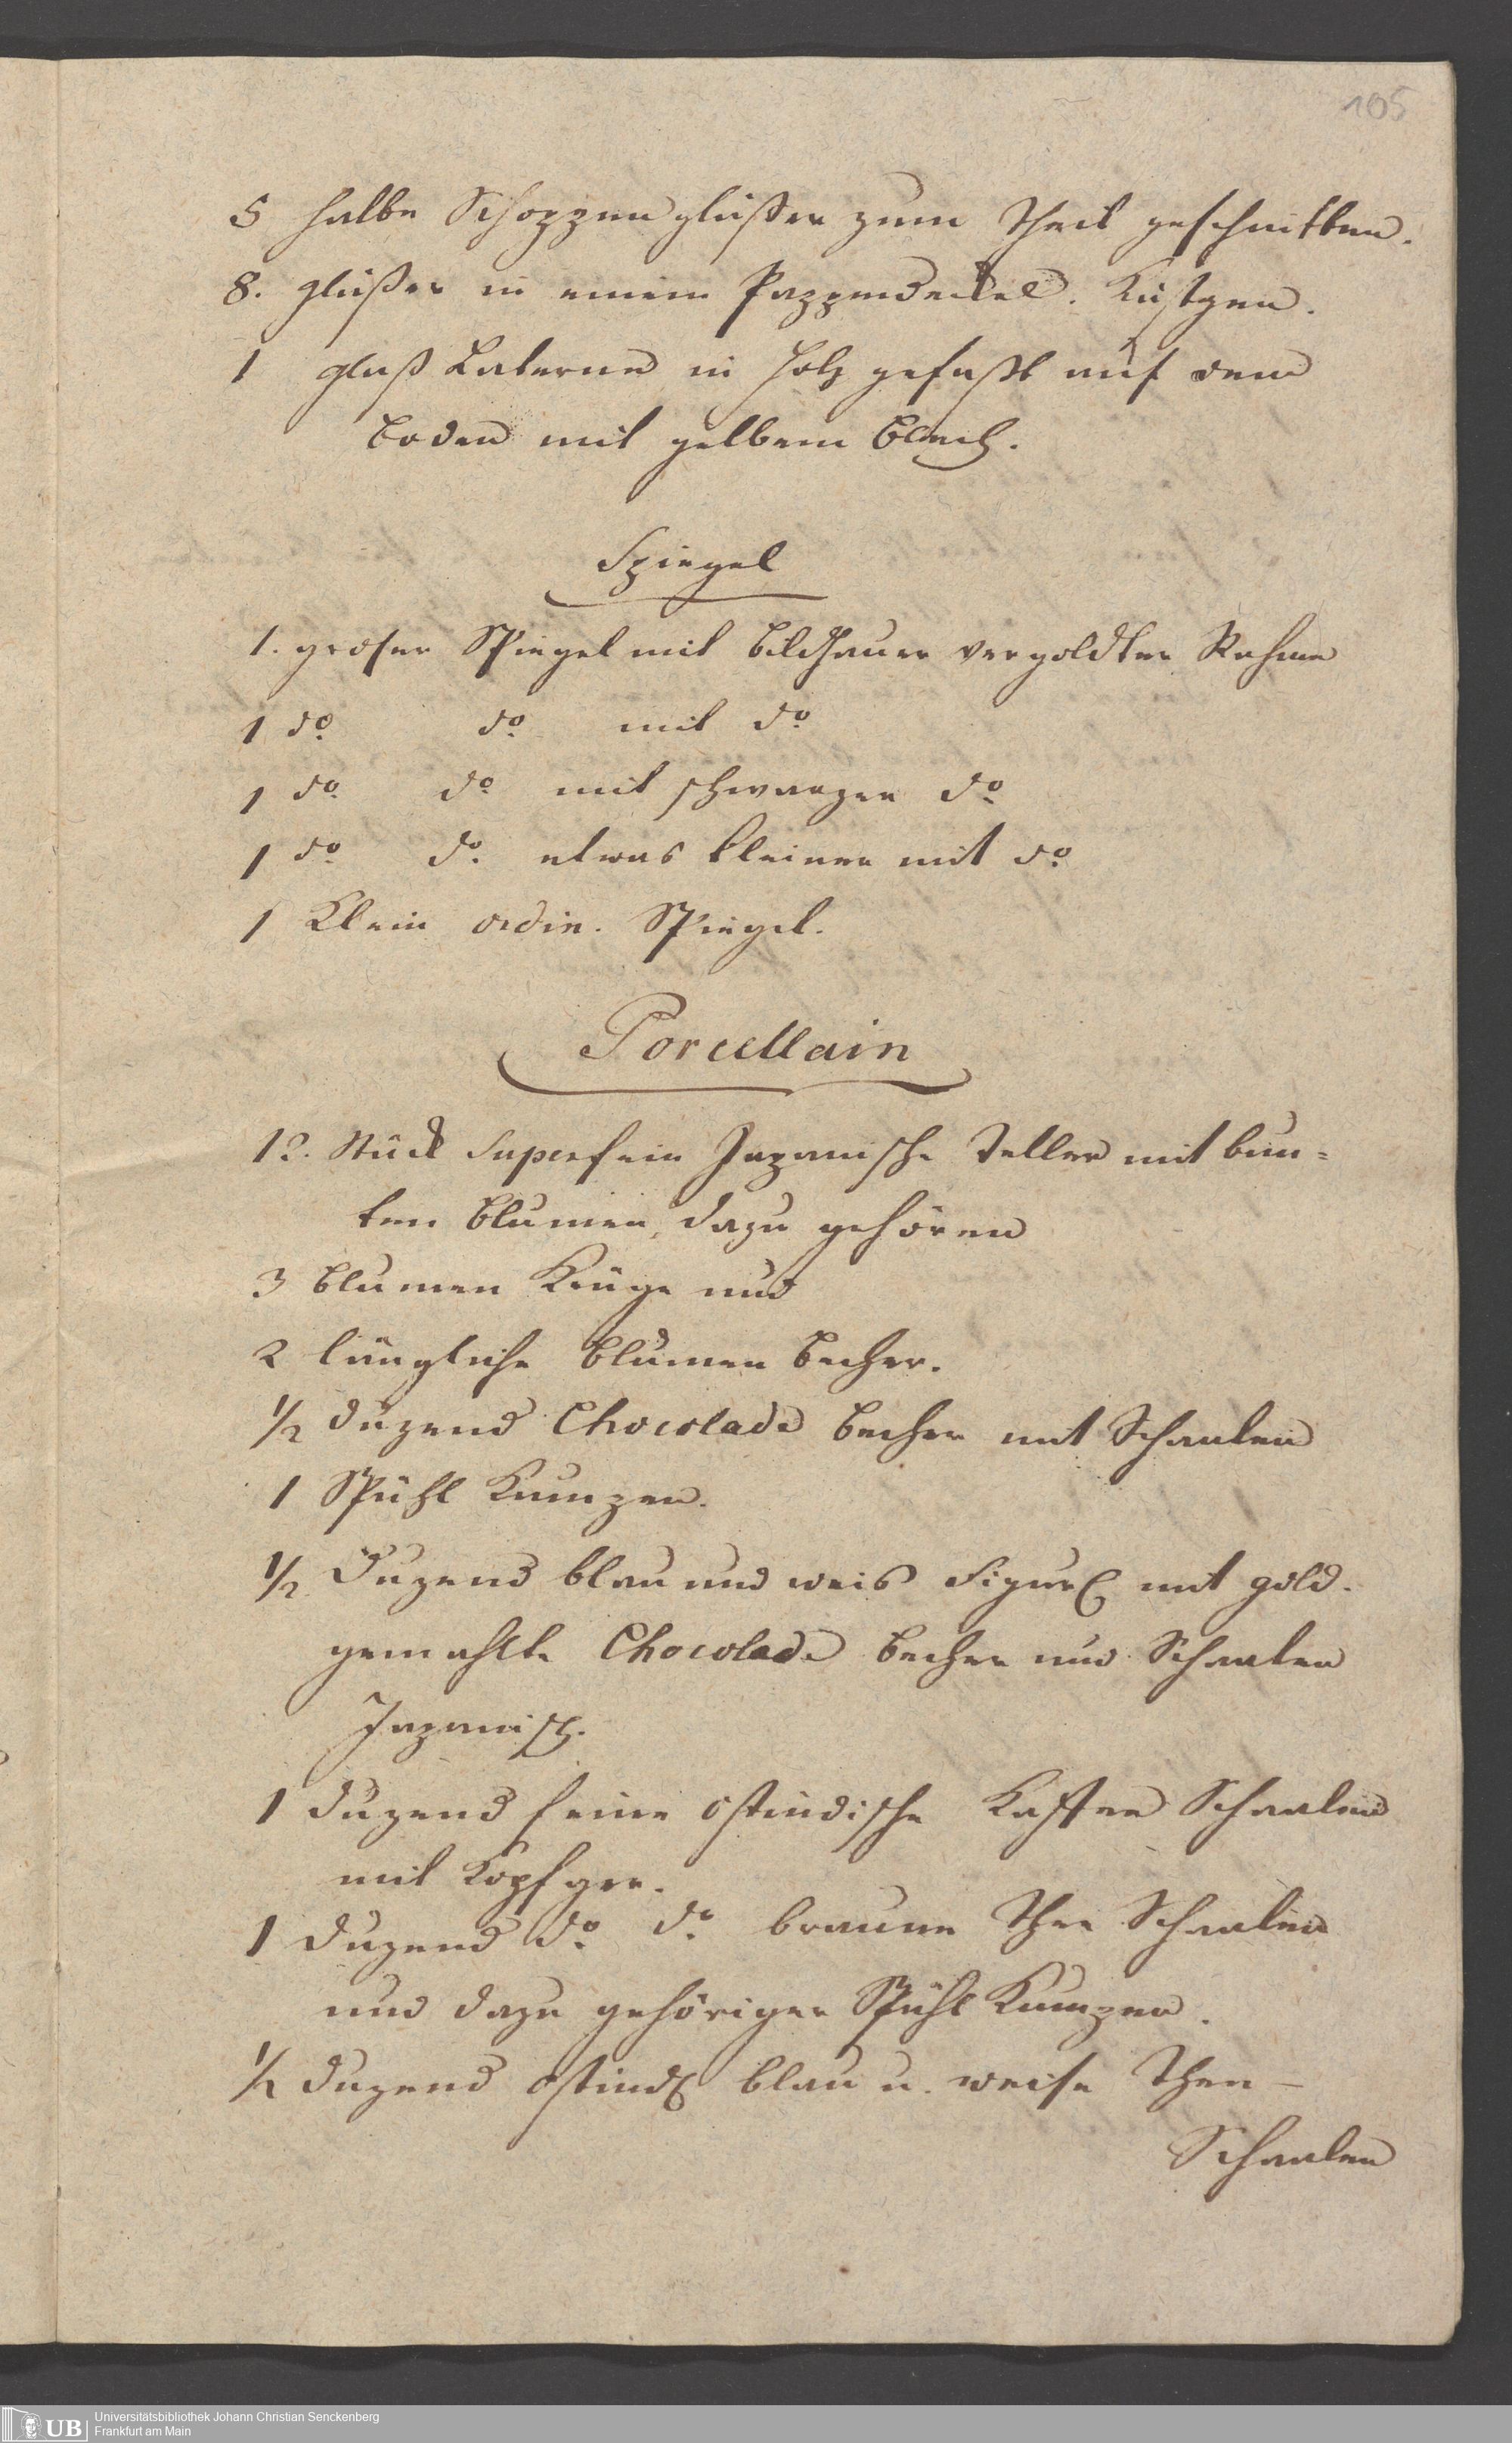 105
5 halbe Schoppengläßer zum Theil geschnitten.
8. gläßer in einem Pappendeckel. Kästgen.
1 glaß Laterne in Holz gefaßt auf dem
Boden mit gelbem Blech.
Spiegel
1. groser Spiegel mit Bildhauer vergoldter Rahme
1 do do mit do
1 do do mit schwarzer do
1 do do etwas kleiner mit do
1 Klein ordin. Spiegel.
Porcellain
12. Stück superfein Japanische Teller mit bun=
ten Blumen, dazu gehören
3 Blumen Krüge und
2 längliche Blumen Becher.
1/2 duzend Chocolade Becher mit Schaalen
1 Spühl Kumpen.
1/2 Duzend blau und weis Figur mit gold.
gemahlte Chocolade Becher und Schaalen
Japanisch.
1 duzend feine ostindische Kaffee Schaalen
mit Kopfger.
1 Duzend do do braune Thee Schaalen
und dazu gehöriger Spühl Kumpen.
1/2 duzend ostind blau u. weise Thee-
Schaalen
UB Universitätsbibliothek Johann Christian Senckenberg
Frankfurt am Main